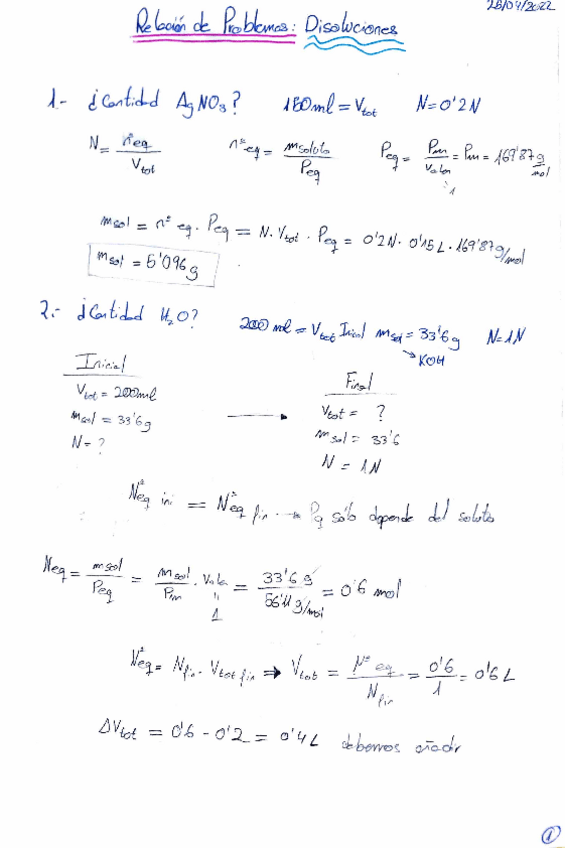 28/04/2022
Relación de Problemas: Disoluciones
1.- ¿Cantidad AgNO3? 150ml = Vtot N=0'2N
N = nºeq / Vtot nºeq = msoluto / Peq Peq = Pm / Valen = Pm = 169'87 g/mol
1
msol = nº eq · Peq = N · Vtot · Peq = 0'2N · 0'15L · 169'87g/mol
msol = 5'096g
2.- ¿Cantidad H2O? 200 ml = Vtot Inicial msol = 33'6g N=1N
KOH
Inicial Final
Vtot = 200ml Vtot = ?
msol = 33'6g msol = 33'6
N = ? N = 1N
Nºeq ini = Nºeq fin → Pq sólo depende del soluto
Neq = msol / Peq = msol / Pm · Vale = 33'6 g / 56'11 g/mol = 0'6 mol
1
Nºeq = Nfin · Vtot fin ⇒ Vtot = Nº eq / Nfin = 0'6 / 1 = 0'6 L
ΔVtot = 0'6 - 0'2 = 0'4L debemos añadir
1